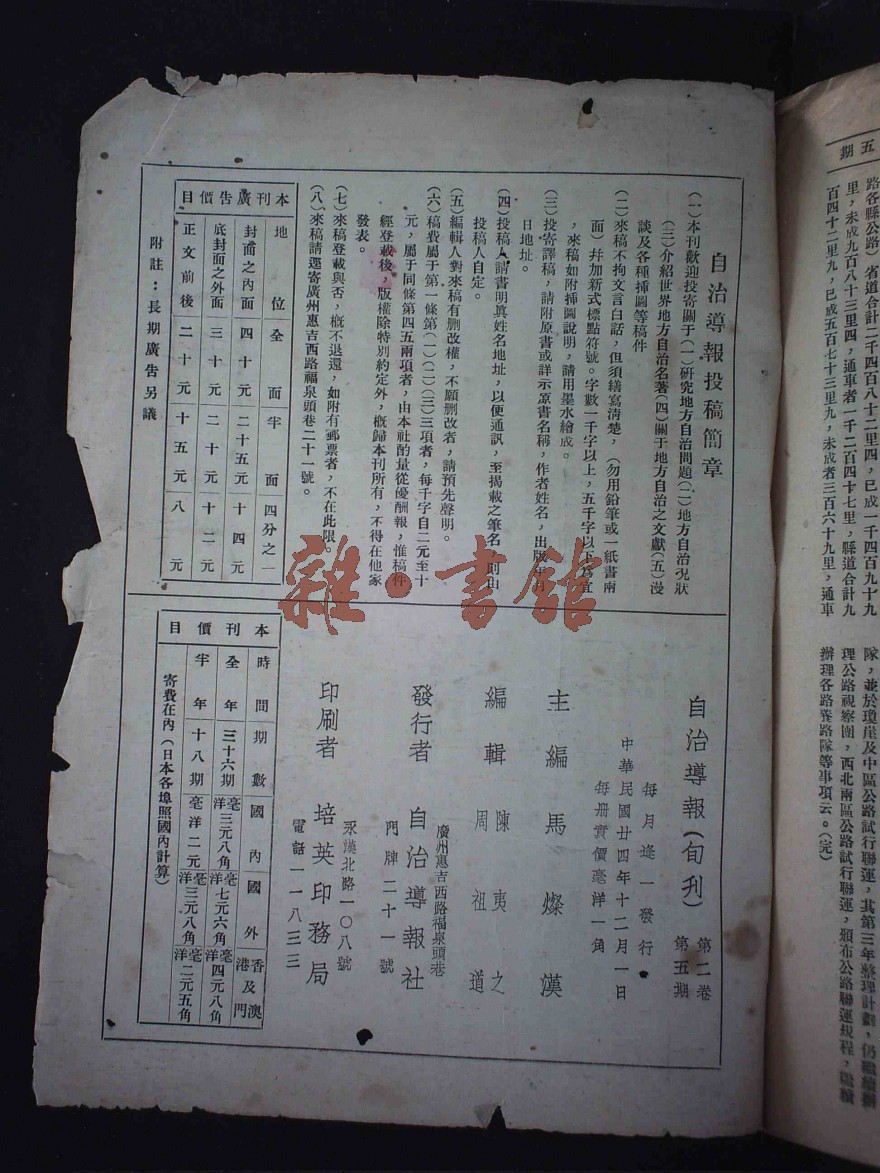 五期
路各縣公路）省道合計二千四百八十二里四，已成一千四百九十九
里，未成九百八十三里四，通車者一千二百四十七里，縣道合計九
百四十二里九，已成五百七十三里九，未成者三百六十九里，通車
隊，並於瓊崖及中區公路試行聯運，其第三年整理計劃，仍繼續辦
理公路視察團，西北兩區公路試行聯運，頒布公路聯運規程，繼續
辦理各路養路隊等事項云。（完）
自治導報投稿簡章
（一）本刊歡迎投寄關于（一）研究地方自治問題（二）地方自治況狀
（三）介紹世界地方自治名著（四）關于地方自治之文獻（五）漫
談及各種挿圖等稿件
（二）來稿不拘文言白話，但須繕寫清楚，（勿用鉛筆或一紙書兩
面）幷加新式標點符號。字數一千字以上，五千字以下爲宜
，來稿如附挿圖說明，請用墨水繪成。
（三）投寄譯稿，請附原書或詳示原書名稱，作者姓名，出版年月
日地址。
（四）投稿人請書明眞姓名地址，以便通訊，至揭載之筆名，則由
投稿人自定。
（五）編輯人對來稿有删改權，不願删改者，請預先聲明。
（六）稿費屬于第一條第（一）（二）（三）三項者，每千字自二元至十
元，屬于同條第四五兩項者，由本社酌量從優酬報，惟稿件
經登載後，版權除特別約定外，概歸本刊所有，不得在他家
發表。
（七）來稿登載與否，概不退還，如附有郵票者，不在此限。
（八）來稿請逕寄廣州惠吉西路福泉頭巷二十一號。
本刊廣告價目
地位 全面 半面 四分之一
封面之內面 四十元 二十五元 十四元
底封面之外面 三十元 二十元 十二元
正文前後 二十元 十五元 八元
附註：長期廣告另議
自治導報（旬刋） 第二卷 第五期
每月逢一發行
中華民國廿四年十二月一日
每册實價毫洋一角
主編 馬燦漢
編輯 陳夷之 周祖道
發行者 自治導報社
廣州惠吉西路福泉頭巷
門牌二十一號
印刷者 培英印務局
永漢北路一〇八號
電話一一八三三
本刊價目
時間 期數 國內 國外 香港及澳門
全年 三十六期 毫洋三元八角 毫洋七元六角 毫洋四元八角
半年 十八期 毫洋二元 毫洋三元八角 毫洋二元五角
寄費在內（日本各埠照國內計算）
雜·書館